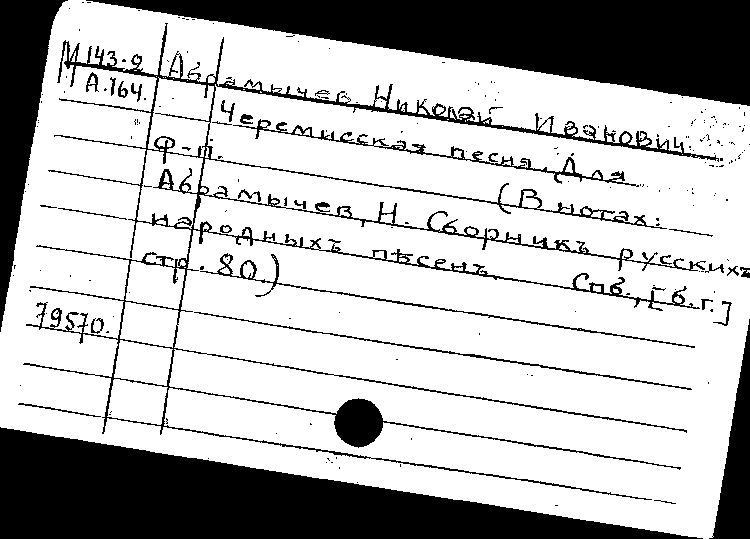 М 143-2
А.164.
Абрамычев, Николай Иванович.
Черемисская песня. Для
ф-п. (В нотах:
Абрамычев, Н. Сборникъ русскихъ
народныхъ пѣсенъ. Спб., [б.г.]
стр. 80.)
79570.